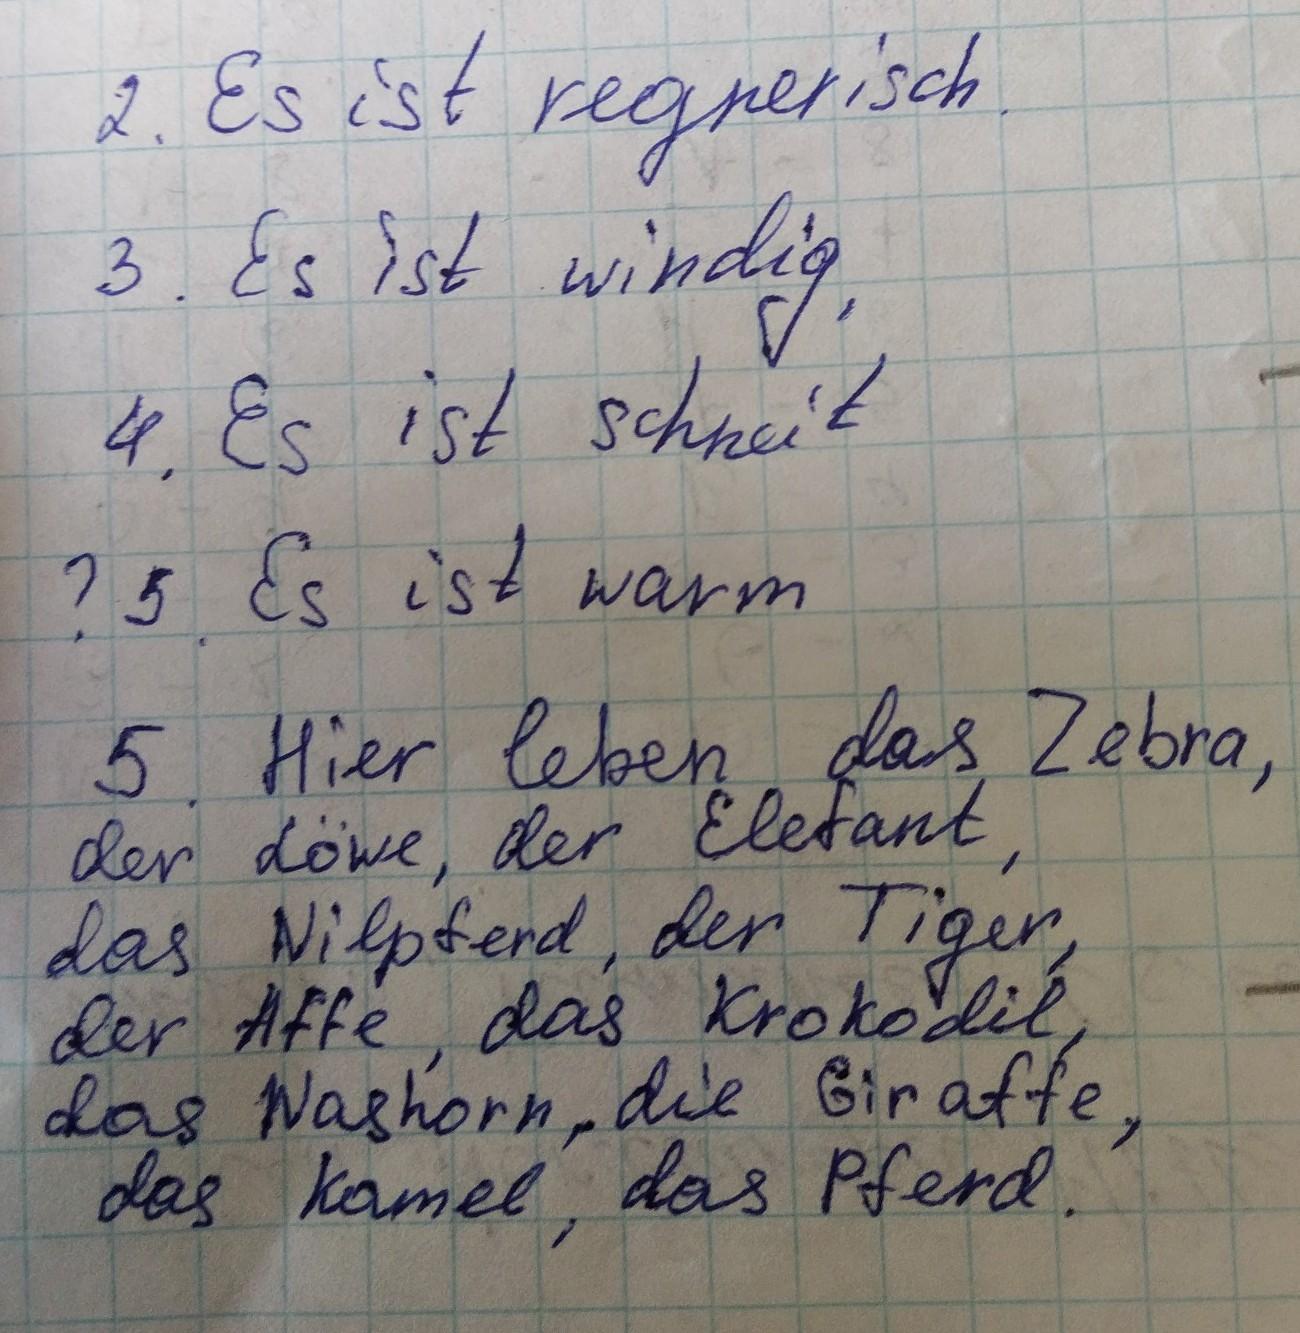 2. Es ist regnerisch.
3. Es ist windig.
4. Es ist schneit
? 5. Es ist warm
5. Hier leben das Zebra,
der Löwe, der Elefant,
das Nilpferd, der Tiger,
der Affe, das Krokodil,
das Nashorn, die Giraffe,
das Kamel, das Pferd.